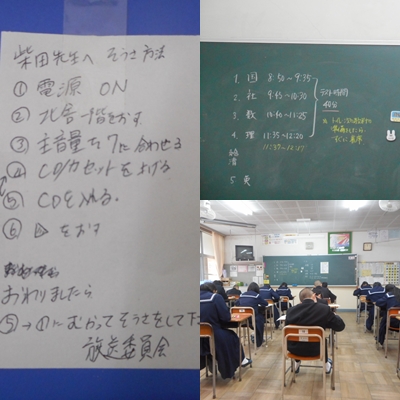 柴田先生へ そうさ方法
① 電源 ON
② 北舎一階をおす
③ 主音量を7に合わせる
④ CD/カセットを上げる
⑤ CDを入れる。
⑥ ▷をおす
おわりましたら
⑤→①にむかってそうさをして下
放送委員会
1. 国 8:50~9:35
2. 社 9:45~10:30
3. 数 10:40~11:25
4. 理 11:35~12:20
5. 英
テスト時間